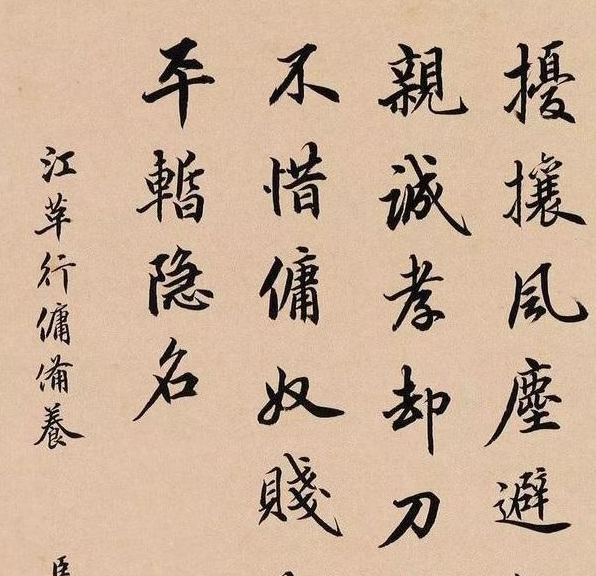 擾攘風塵避
親誠孝却刀
不惜傭奴賤
平暫隐名
江革行傭備養
臣